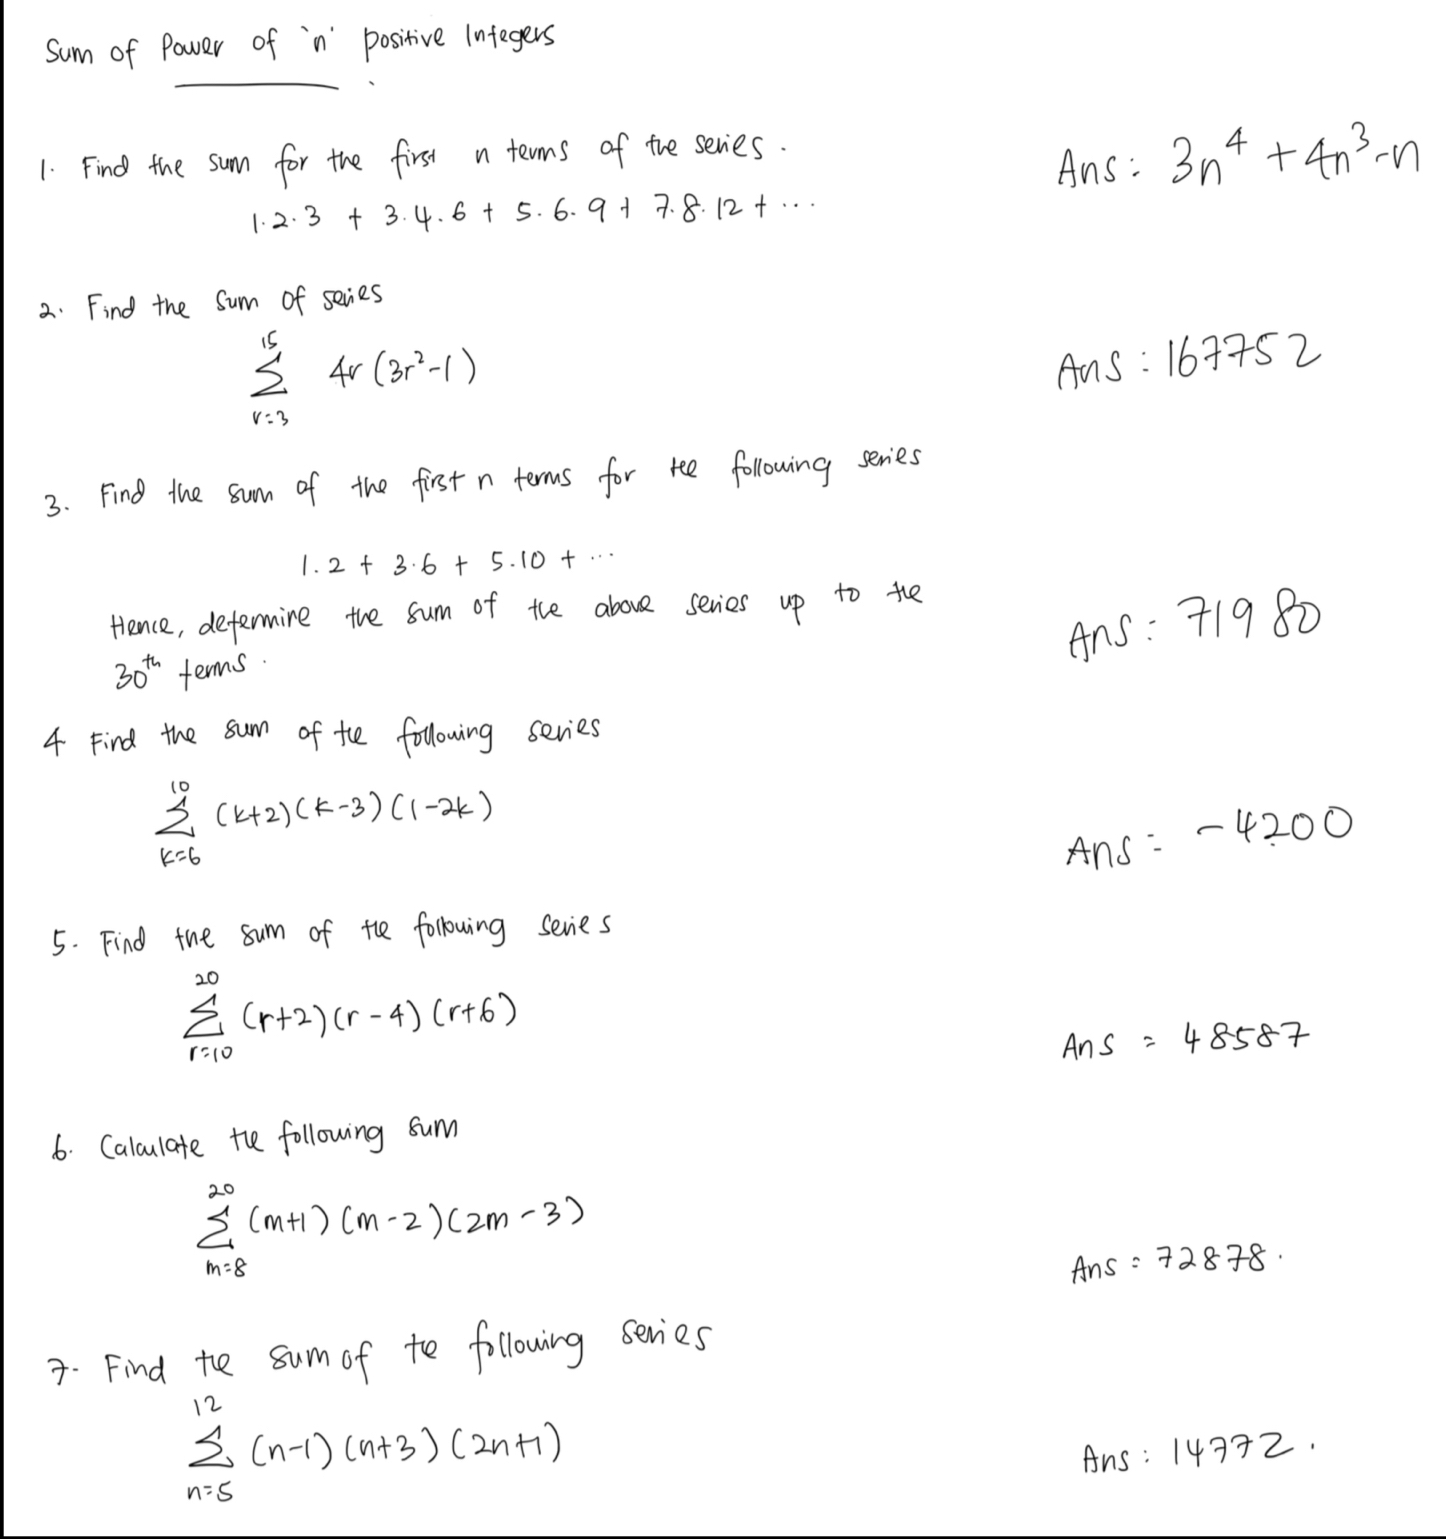 Sum of Power of 'n' positive Integers
1. Find the sum for the first n terms of the series.
1.2.3 + 3.4.6 + 5.6.9 + 7.8.12 + ...
Ans: 3n⁴ + 4n³ - n
2. Find the sum of series
15
Σ 4r (3r² - 1)
r=3
Ans : 167752
3. Find the sum of the first n terms for the following series
1.2 + 3.6 + 5.10 + ...
Hence, determine the sum of the above series up to the
30th terms.
Ans : 71980
4 Find the sum of the following series
10
Σ (k+2)(k-3)(1-2k)
k=6
Ans = -4200
5. Find the sum of the following series
20
Σ (r+2)(r-4)(r+6)
r=10
Ans = 48587
6. Calculate the following sum
20
Σ (m+1)(m-2)(2m-3)
m=8
Ans : 72878.
7. Find the sum of the following series
12
Σ (n-1)(n+3)(2n+1)
n=5
Ans : 14772.